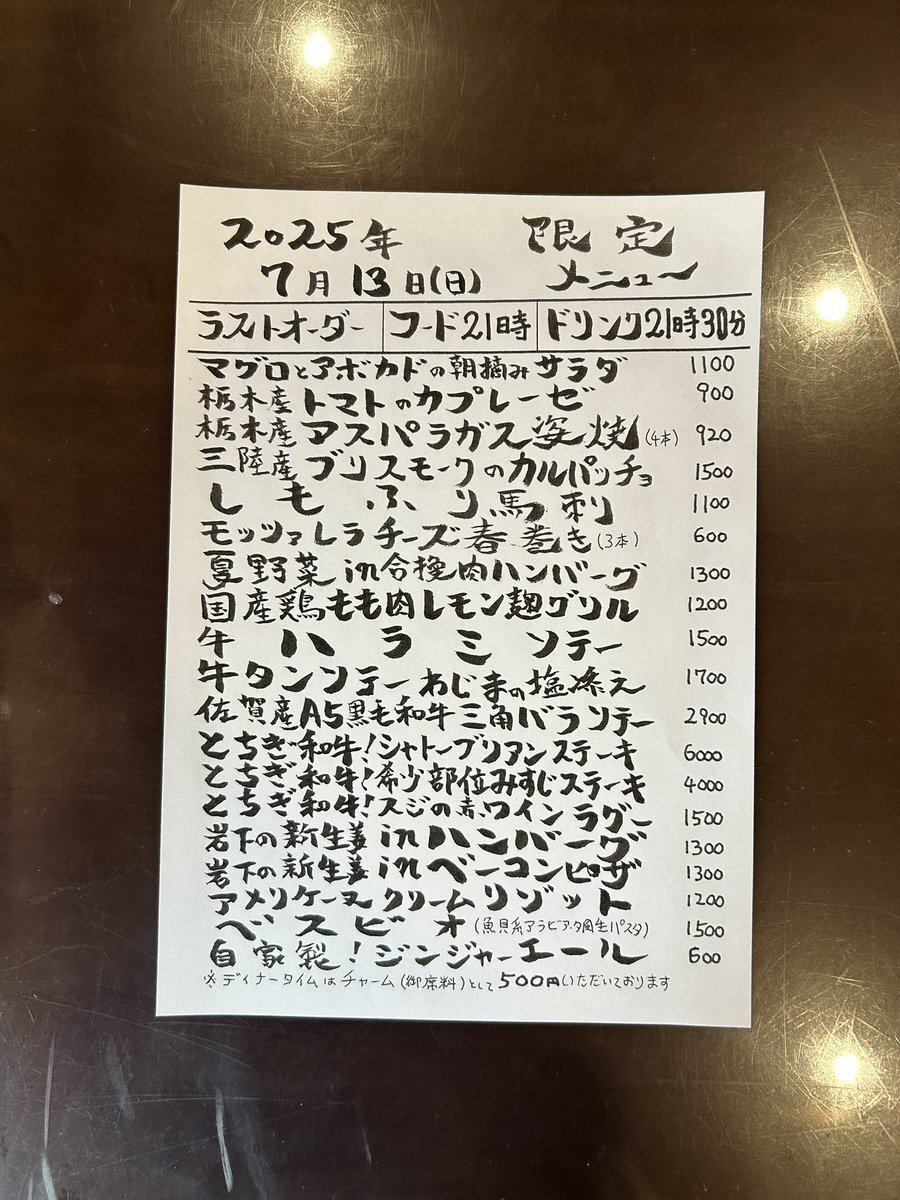 2025年 限定
7月13日(日) メニュー
ラストオーダー フード21時 ドリンク21時30分
マグロとアボカドの朝摘みサラダ 1100
栃木産トマトのカプレーゼ 900
栃木産アスパラガス姿焼(4本) 920
三陸産ブリスモークのカルパッチョ 1500
しもふり馬刺 1100
モッツァレラチーズ春巻き(3本) 600
夏野菜in合挽肉ハンバーグ 1300
国産鶏もも肉レモン麹グリル 1200
牛ハラミソテー 1500
牛タンソテーわじまの塩添え 1700
佐賀産A5黒毛和牛三角バラソテー 2900
とちぎ和牛!シャトーブリアンステーキ 6000
とちぎ和牛!希少部位みすじステーキ 4000
とちぎ和牛!スジの赤ワインラグー 1500
岩下の新生姜inハンバーグ 1300
岩下の新生姜inベーコンピザ 1300
アメリケーヌクリームリゾット 1200
ベスビオ(魚貝系アラビアータ生パスタ) 1500
自家製!ジンジャーエール 600
※ディナータイムはチャーム(御席料)として500円いただいております